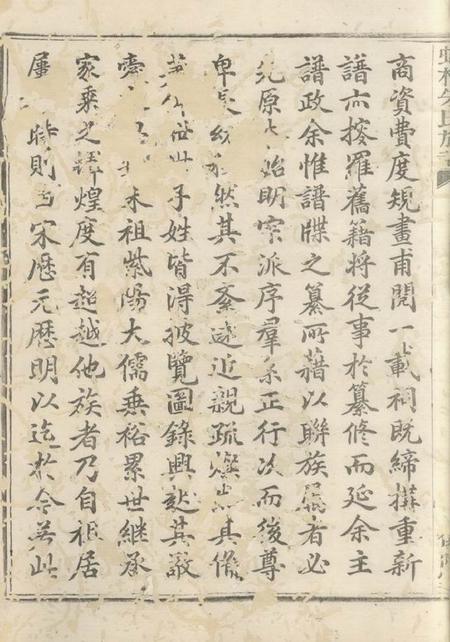 商資費度規畫甫閱一載祠既締搆重新
譜亦搜羅舊籍將從事於纂修而延余主
譜政余惟譜牒之纂所藉以聯族屬者必
原始明宗派序羣正行次而後尊
卑長幼然其不紊遠近親疏燦其備
世子姓皆得披覽圖錄興起其敬
朱祖紫陽大儒垂裕累世繼承
家乘之輝煌度有超越他族者乃自祖居
屢時則宋歷元歷明以迄於今若此
朱氏族